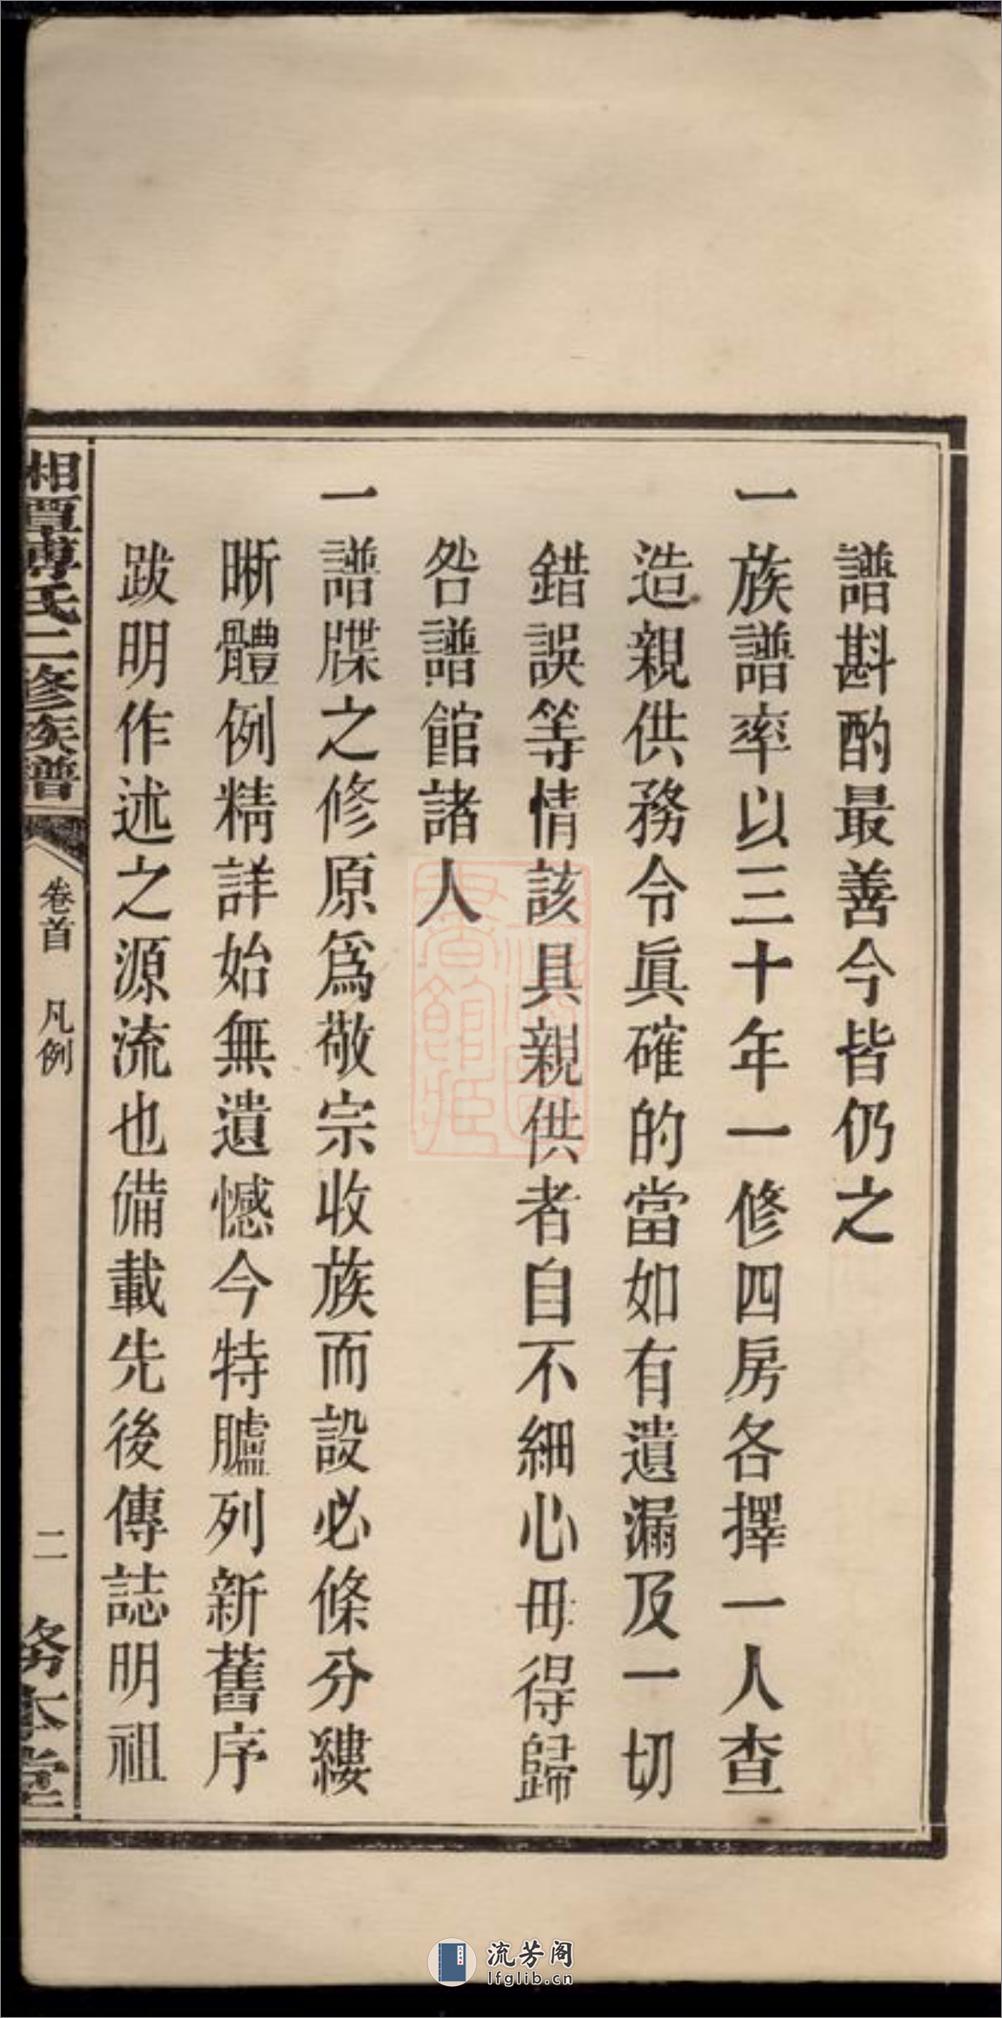 譜斟酌最善今皆仍之
一族譜率以三十年一修四房各擇一人查
造親供務令眞確的當如有遺漏及一切
錯誤等情該具親供者自不細心毋得歸
咎譜館諸人
一譜牒之修原爲敬宗收族而設必條分縷
晰體例精詳始無遺憾今特臚列新舊序
跋明作述之源流也備載先後傳誌明祖
湘潭傅氏二修族譜
卷首 凡例
二
務本堂
流芳阁
lfglib.cn